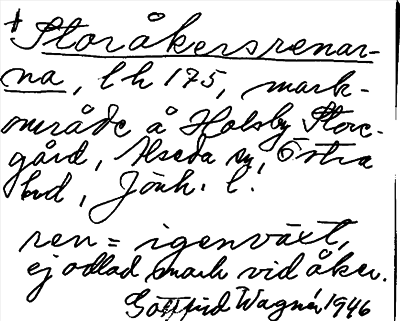 + Storåkersrenar-
na, lh 175, mark-
område å Holsby Stor-
gård, Alseda sn, Östra
hd, Jönk. l.
ren = igenväxt,
ej odlad mark vid åker.
Gottfrid Wagnér 1946